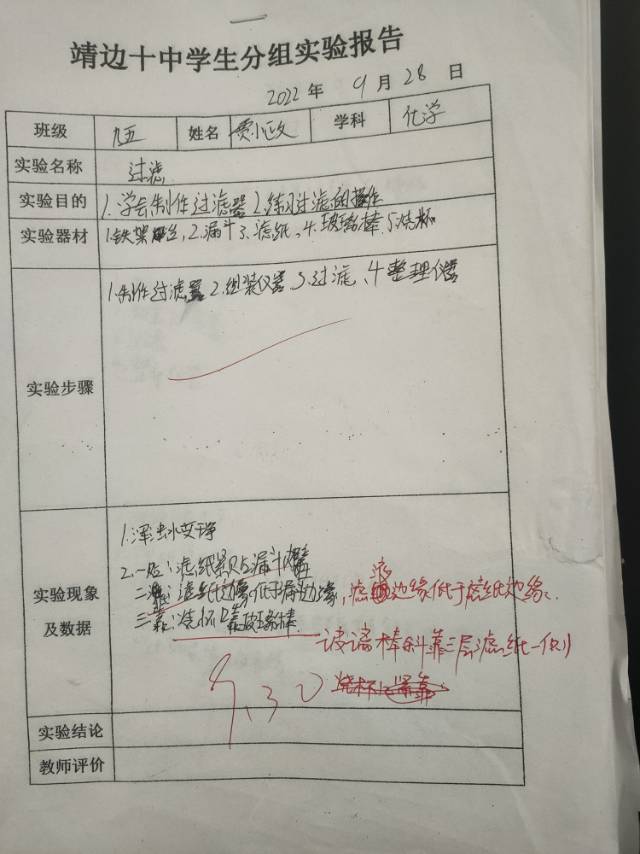 靖边十中学生分组实验报告
2022 年 9 月 28 日
班级 九五 姓名 学科 化学
实验名称 过滤
实验目的 1.学会制作过滤器 2.练习过滤的操作
实验器材 1.铁架台, 2.漏斗 3.滤纸、4.玻璃棒.5.烧杯
实验步骤 1.制作过滤器 2.组装仪器、3.过滤、4.整理仪器
实验现象及数据 1.浑浊水变净
2.一贴:滤纸紧贴漏斗内壁
二低:滤纸边缘低于漏斗边缘,滤液边缘低于滤纸边缘、
三靠:烧杯口靠玻璃棒.
玻璃棒斜靠三层滤纸一侧
烧杯 紧靠
9.30
实验结论
教师评价